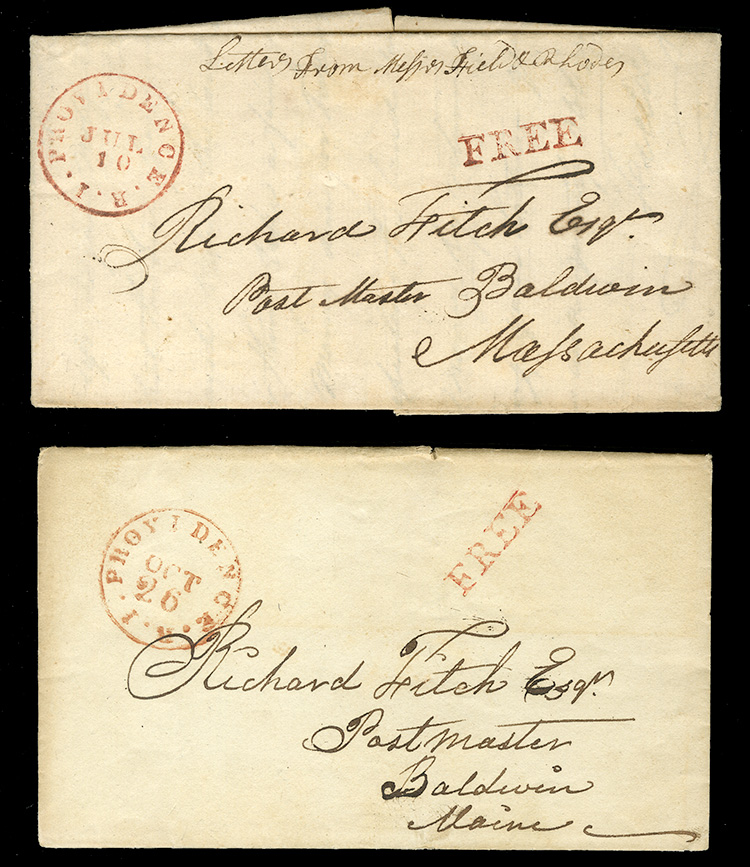 Letters From Messrs Field & Rhodes
PROVIDENCE. R. I.
JUL
10
FREE
Richard Fitch Esqr.
Post Master Baldwin
Massachusetts
PROVIDENCE. R. I.
OCT
26
FREE
Richard Fitch Esqr.
Postmaster
Baldwin
Maine